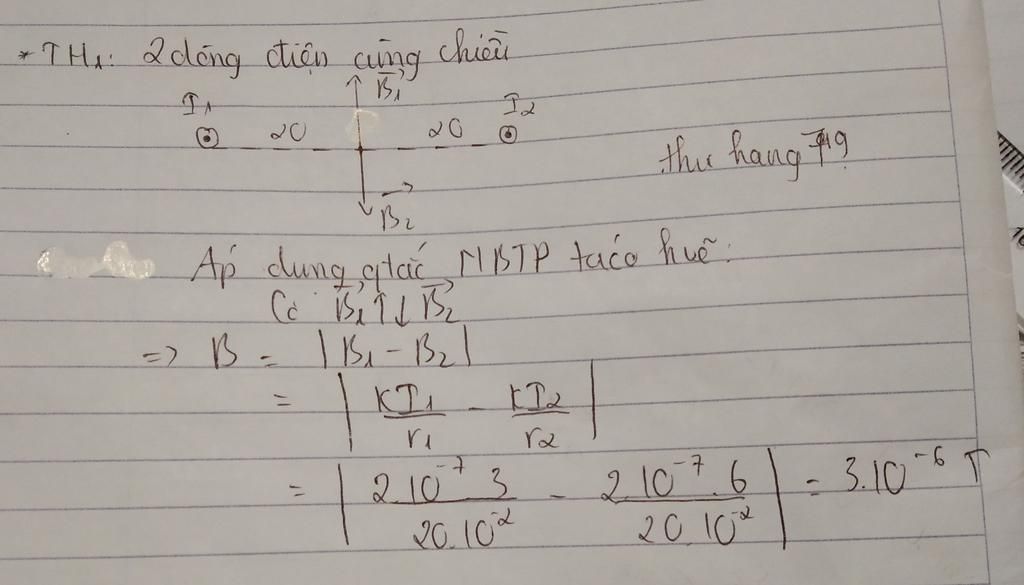 *TH1: 2 dòng điện cùng chiều
B1
I1 I2
20 20
B2
Áp dụng qtắc NBTP ta có hvẽ:
Có B1 ↑↓ B2
=> B = |B1 - B2|
= | KI1/r1 - KI2/r2 |
= | 2.10^-7 3/20.10^-2 - 2.10^-7.6/20.10^-2 | = 3.10^-6 T